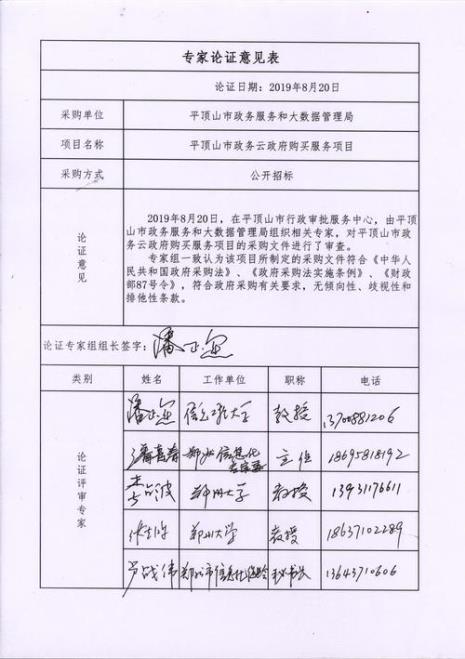 专家论证意见表
论证日期：2019年8月20日
采购单位 平顶山市政务服务和大数据管理局
项目名称 平顶山市政务云政府购买服务项目
采购方式 公开招标
论证意见
2019年8月20日，在平顶山市行政审批服务中心，由平顶
山市政务服务和大数据管理局组织相关专家，对平顶山市政
务云政府购买服务项目的采购文件进行了审查。
专家组一致认为该项目所制定的采购文件符合《中华人
民共和国政府采购法》、《政府采购法实施条例》、《财政
部87号令》，符合政府采购有关要求，无倾向性、歧视性和
排他性条款。
论证专家组组长签字：
类别 姓名 工作单位 职称 电话
论证评审专家
大学 教授 13700881206
主任 18695818192
郑州大学 教授 13931176611
郑州大学 教授 18637102289
战伟 郑州市信息化 秘书长 13643710606